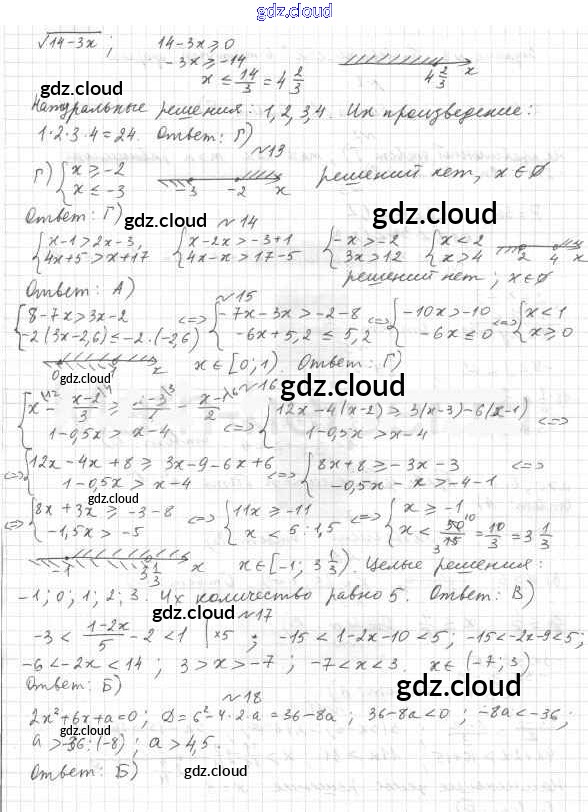 gdz.cloud
√14-3x ; 14-3x ≥ 0
-3x ≥ -14
x ≤ 14/3 = 4 2/3
4 2/3 x
gdz.cloud
gdz.cloud
Натуральные решения: 1, 2, 3, 4. Их произведение:
1·2·3·4 = 24. Ответ: Г)
№13
Г) { x ≥ -2 x ≤ -3 -3 -2 x решений нет, x ∈ ∅
Ответ: Г)
gdz.cloud
№14
{ x-1 > 2x-3, 4x+5 > x+17 { x-2x > -3+1 4x-x > 17-5 { -x > -2 3x > 12 { x < 2 x > 4 2 4 x
решений нет; x ∈ ∅
Ответ: А)
gdz.cloud
№15
{ 8-7x > 3x-2 -2(3x-2,6) ≤ -2·(-2,6) <=> { -7x-3x > -2-8 -6x+5,2 ≤ 5,2 <=> { -10x > -10 -6x ≤ 0 <=> { x < 1 x ≥ 0
0 1 x x ∈ [0; 1). Ответ: Г)
gdz.cloud
gdz.cloud
№16
{ x - (x-2)/3 ≥ (x-3)/4 - (x-1)/2 1-0,5x > x-4 <=> { 12x-4(x-2) ≥ 3(x-3)-6(x-1) 1-0,5x > x-4 <=>
<=> { 12x-4x+8 ≥ 3x-9-6x+6 1-0,5x > x-4 <=> { 8x+8 ≥ -3x-3 -0,5x-x > -4-1 <=>
gdz.cloud
<=> { 8x+3x ≥ -3-8 -1,5x > -5 <=> { 11x ≥ -11 x < 5:1,5 <=> { x ≥ -1 x < 50/15 = 10/3 = 3 1/3
gdz.cloud
-1 3 1/3 x x ∈ [-1; 3 1/3). Целые решения:
-1; 0; 1; 2; 3. Их количество равно 5. Ответ: В)
gdz.cloud
№17
-3 < (1-2x)/5 - 2 < 1 |×5 ; -15 < 1-2x-10 < 5; -15 < -2x-9 < 5;
-6 < -2x < 14; 3 > x > -7; -7 < x < 3. x ∈ (-7; 3)
Ответ: Б)
gdz.cloud
gdz.cloud
№18
2x²+6x+a=0; D=6²-4·2·a=36-8a; 36-8a<0; -8a<-36;
a > -36:(-8); a > 4,5.
Ответ: Б)
gdz.cloud
gdz.cloud